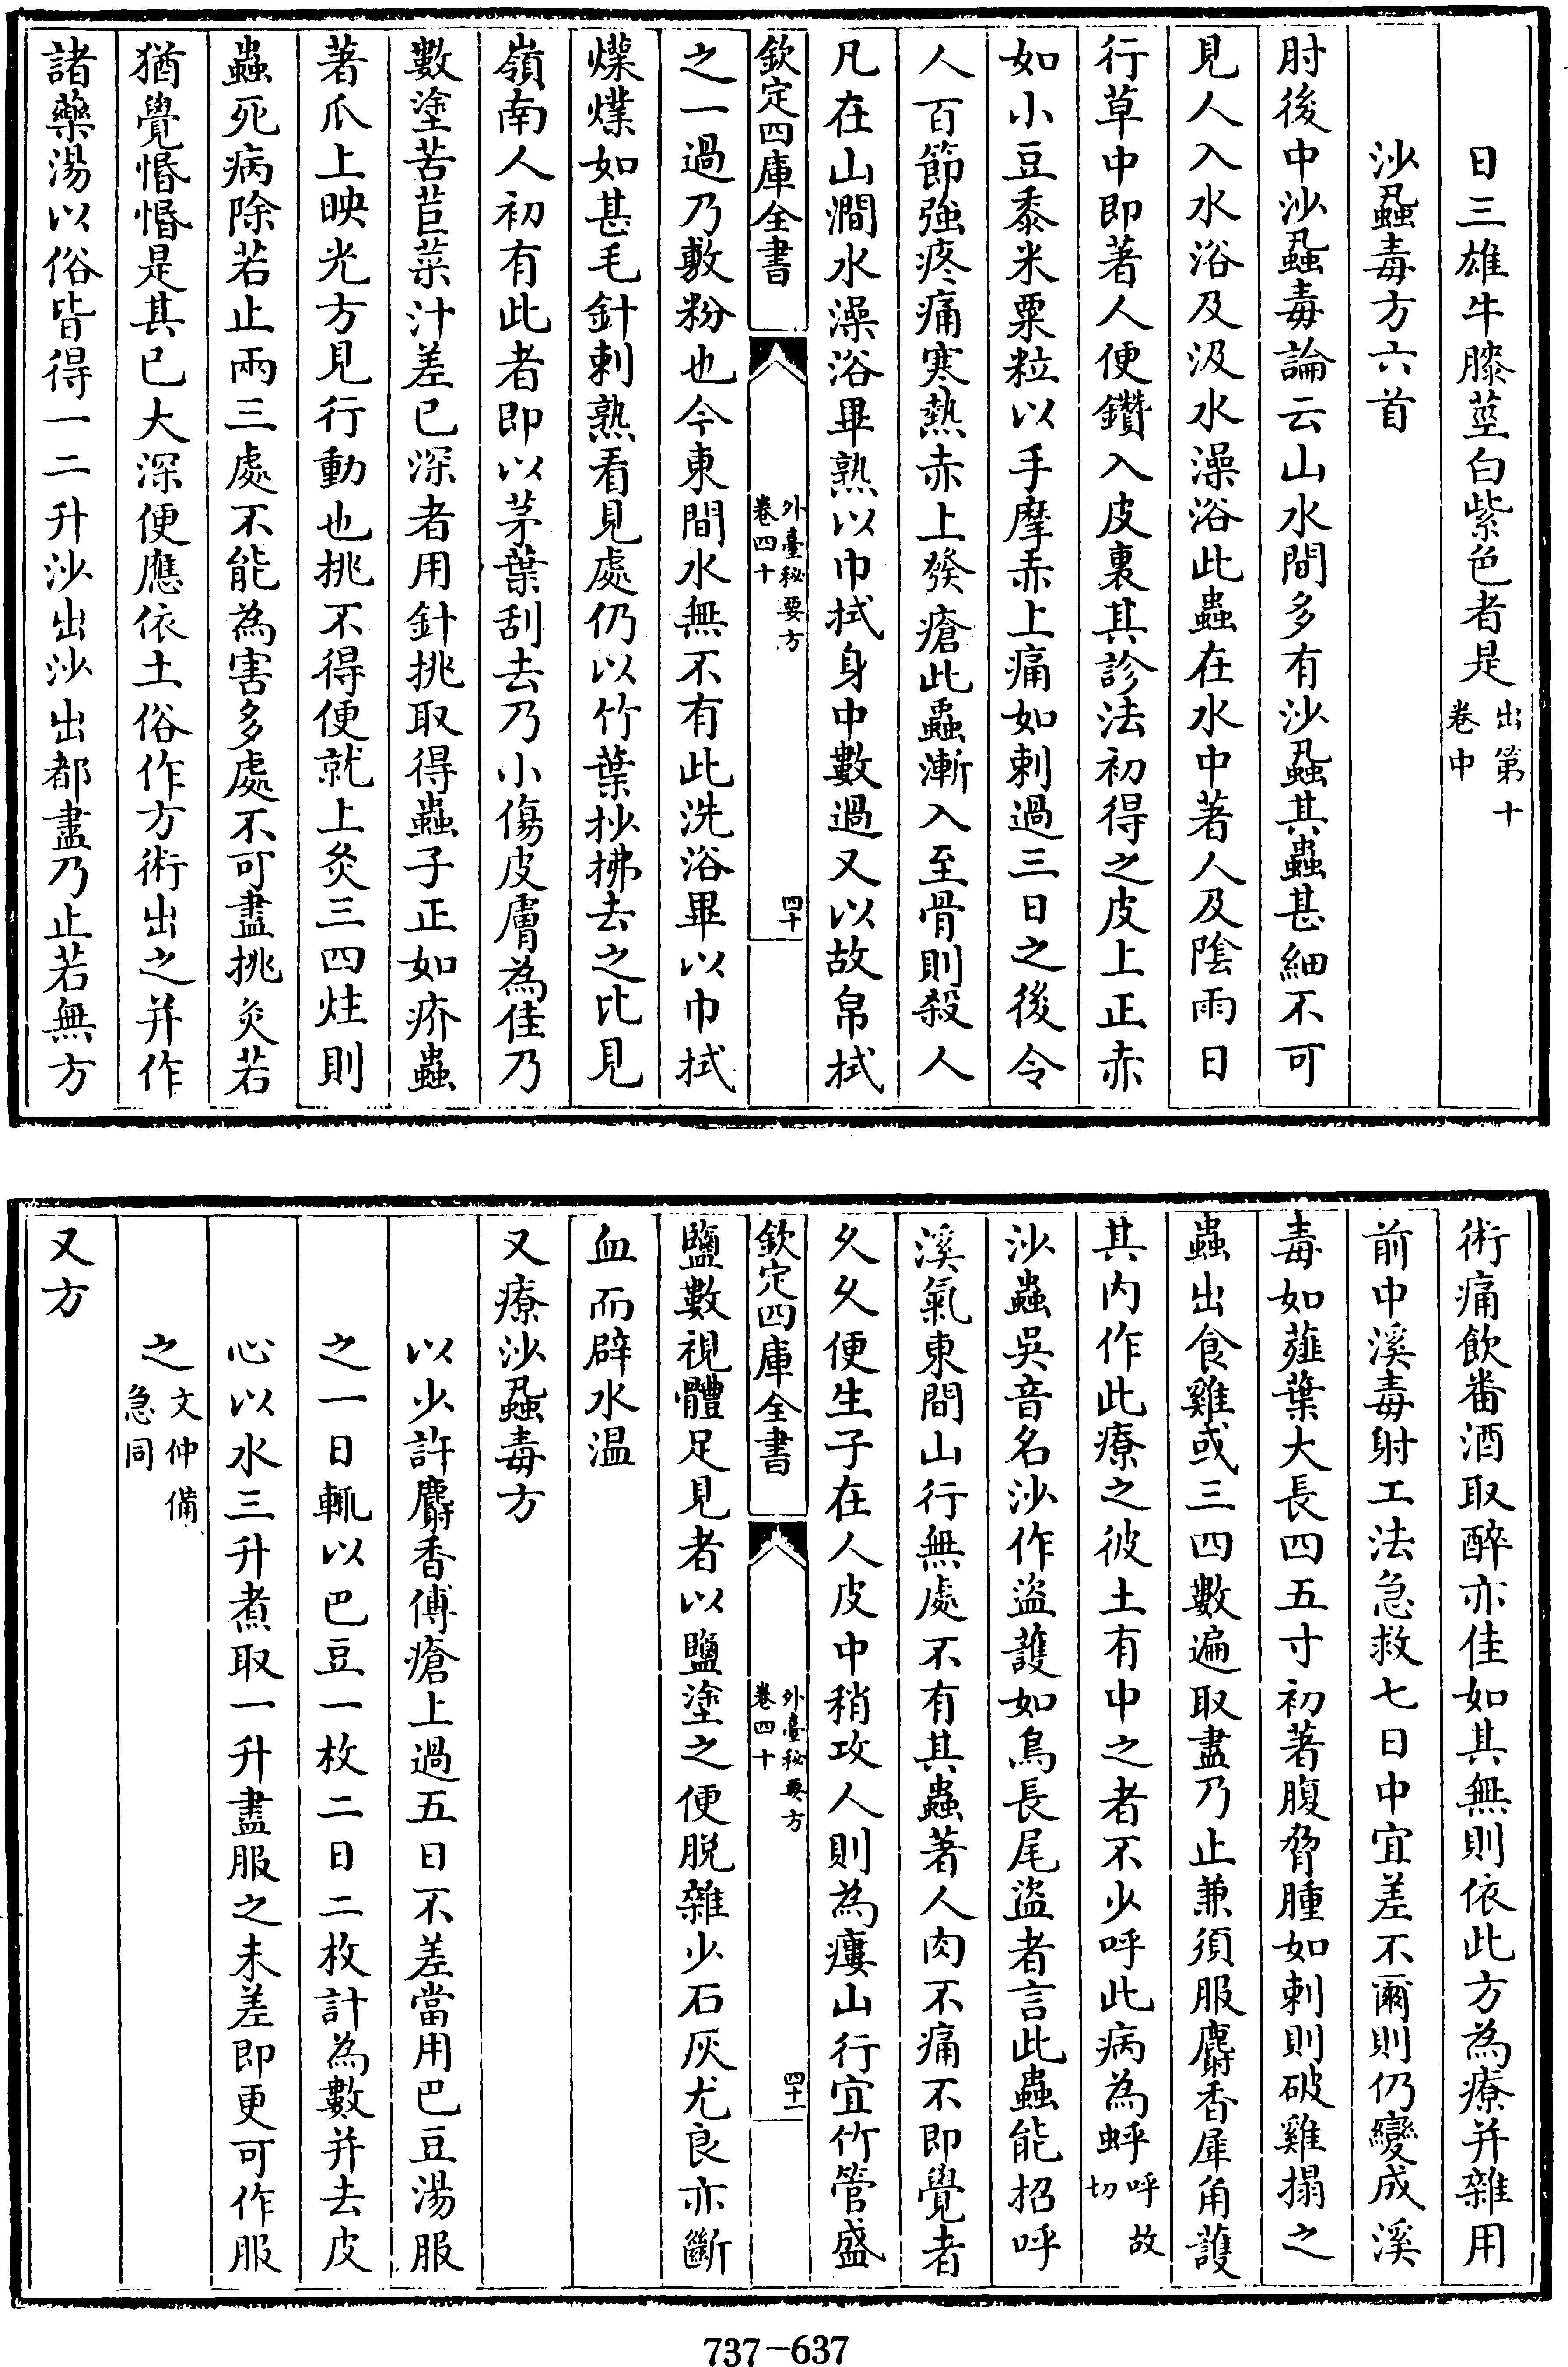 日三雄牛膝莖白紫色者是出第十卷中
沙蝨毒方六首
肘後中沙蝨毒論云山水間多有沙蝨其蟲甚細不可
見人入水浴及汲水澡浴此蟲在水中著人及陰雨日
行草中即著人便鑽入皮裏其診法初得之皮上正赤
如小豆黍米粟粒以手摩赤上痛如刺過三日之後令
人百節強疼痛寒熱赤上發瘡此蟲漸入至骨則殺人
凡在山澗水澡浴畢熟以巾拭身中數過又以故帛拭
欽定四庫全書
外臺秘要方
卷四十
四十
之一過乃敷粉也今東間水無不有此洗浴畢以巾拭
㸌㸌如甚毛針刺熟看見處仍以竹葉抄拂去之比見
嶺南人初有此者即以茅葉刮去乃小傷皮膚為佳乃
數塗苦苣菜汁差已深者用針挑取得蟲子正如疥蟲
著爪上映光方見行動也挑不得便就上灸三四炷則
蟲死病除若止兩三處不能為害多處不可盡挑灸若
猶覺惛惛是其已大深便應依土俗作方術出之并作
諸藥湯以俗皆得一二升沙出沙出都盡乃止若無方
術痛飲番酒取醉亦佳如其無則依此方為療并雜用
前中溪毒射工法急救七日中宜差不爾則仍變成溪
毒如薤葉大長四五寸初著腹脅腫如刺則破雞搨之
蟲出食雞或三四數遍取盡乃止兼須服麝香犀角護
其內作此療之彼土有中之者不少呼此病為蛘呼故切
沙蟲吳音名沙作盜護如鳥長尾盜者言此蟲能招呼
溪氣東間山行無處不有其蟲著人肉不痛不即覺者
久久便生子在人皮中稍攻人則為瘻山行宜竹管盛
欽定四庫全書
外臺秘要方
卷四十
四十一
鹽數視體足見者以鹽塗之便脱雜少石灰尤良亦斷
血而辟水温
又療沙蝨毒方
以少許麝香傅瘡上過五日不差當用巴豆湯服
之一日輒以巴豆一枚二日二枚計為數并去皮
心以水三升煮取一升盡服之未差即更可作服
之文仲備急同
又方
737-637